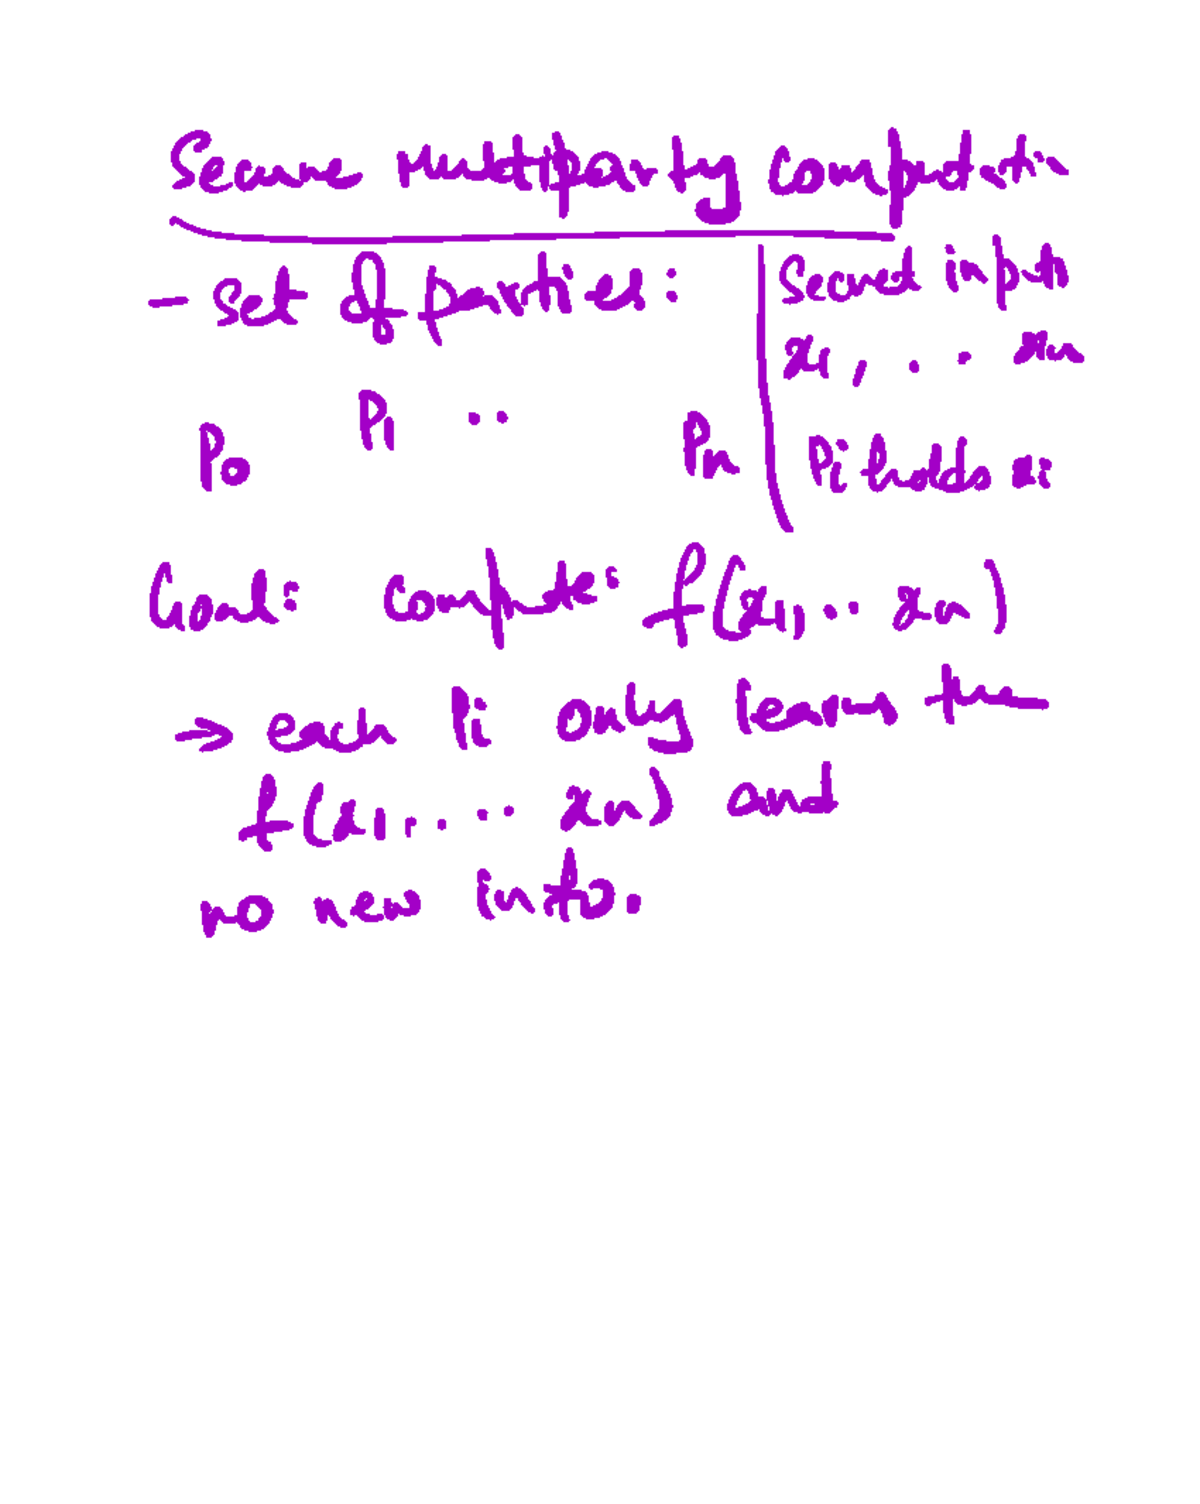 Secure Multiparty computation
- Set of parties:
P0 P1 .. Pn
Secret inputs
x1, . . xn
Pi holds xi
Goal: compute: f(x1, .. xn)
→ each Pi only learns the
f(x1, . . . . xn) and
no new info.